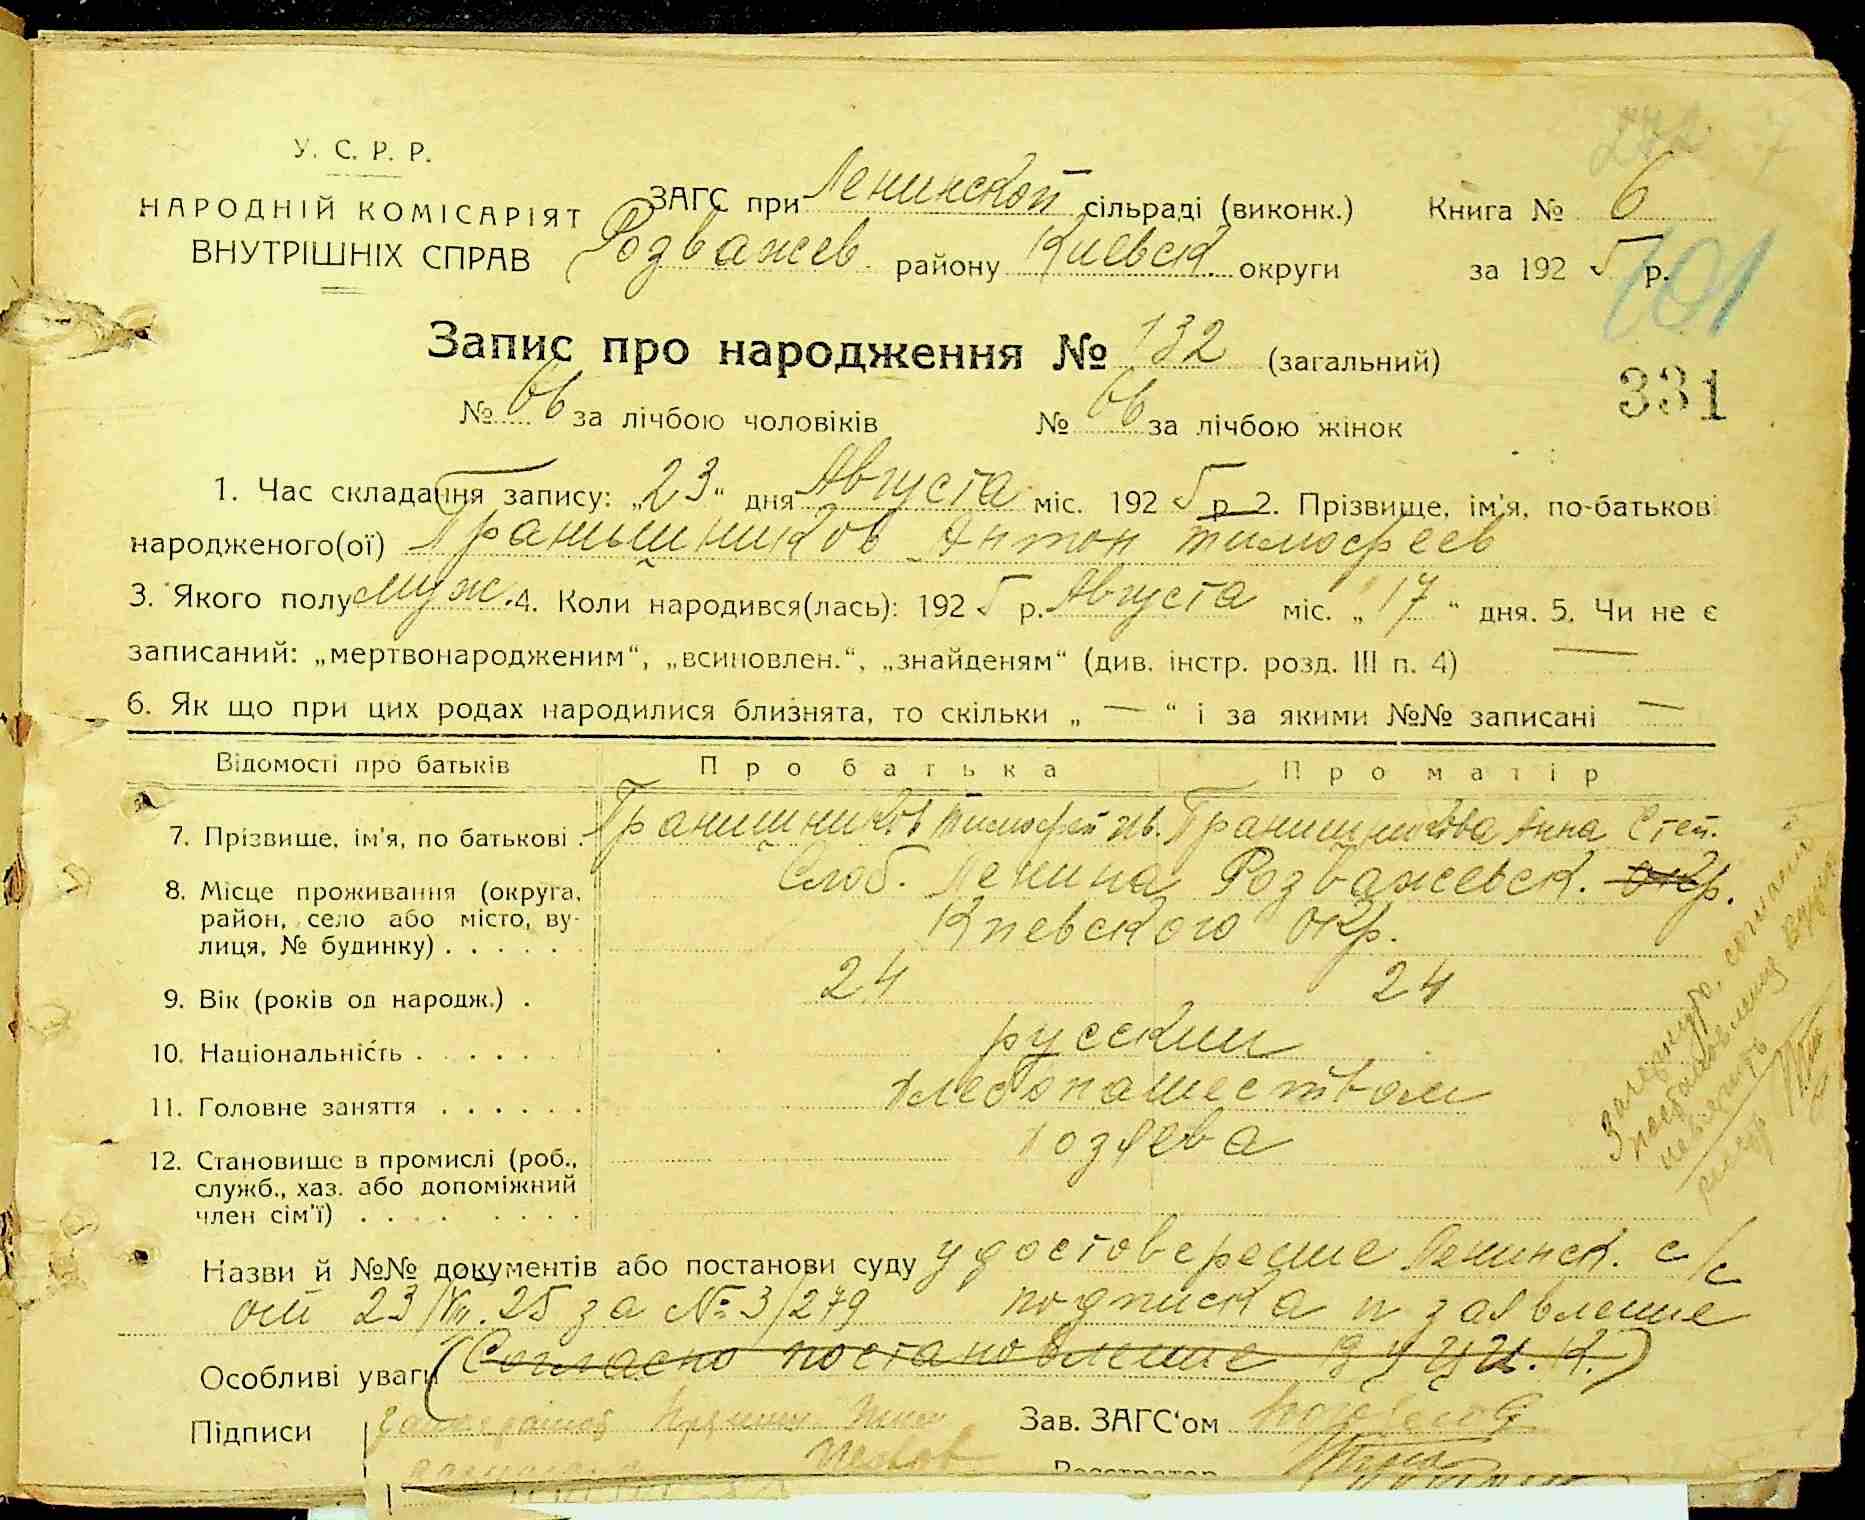 272 7
У. С. Р. Р.
НАРОДНІЙ КОМІСАРІЯТ
ВНУТРІШНІХ СПРАВ
ЗАГС при Ленинской сільраді (виконк.) Книга № 6
Розважев району Киевск. округи за 192 5 р.
101
Запис про народження № 132 (загальний)
331
№ 66 за лічбою чоловіків № 66 за лічбою жінок
1. Час складання запису: „23“ дня Августа міс. 192 5 р. 2. Прізвище, ім'я, по-батькові
народженого(ої) Антон Тимофеев
3. Якого полу муж. 4. Коли народився(лась): 192 5 р. Августа міс. „17“ дня. 5. Чи не є
записаний: „мертвонародженим“, „всиновлен.“, „знайденям“ (див. інстр. розд. III п. 4) —
6. Як що при цих родах народилися близнята, то скільки „ — “ і за якими №№ записані —
Відомості про батьків Про батька Про матір
7. Прізвище, ім'я, по батькові . Тимофей Ив. Анна Степ.
8. Місце проживання (округа, Слоб. Ленина Розважевск. окр.
район, село або місто, ву- Киевского окр.
лиця, № будинку) . . . . . .
9. Вік (років од народж.) . 24 24
10. Національність . . . . . . русские
11. Головне заняття . . . . . . хлебопашеством
12. Становище в промислі (роб., хозяева
служб., хаз. або допоміжний
член сім'ї) . . . . . . . .
Назви й №№ документів або постанови суду удостоверение Ленинск. с/с
от 23/VIII.25 за № 3/279 подписка и заявление
Особливі уваги (Согласно постановление ВУЦИ.К.)
Підписи Зав. ЗАГС'ом
Реєстратор